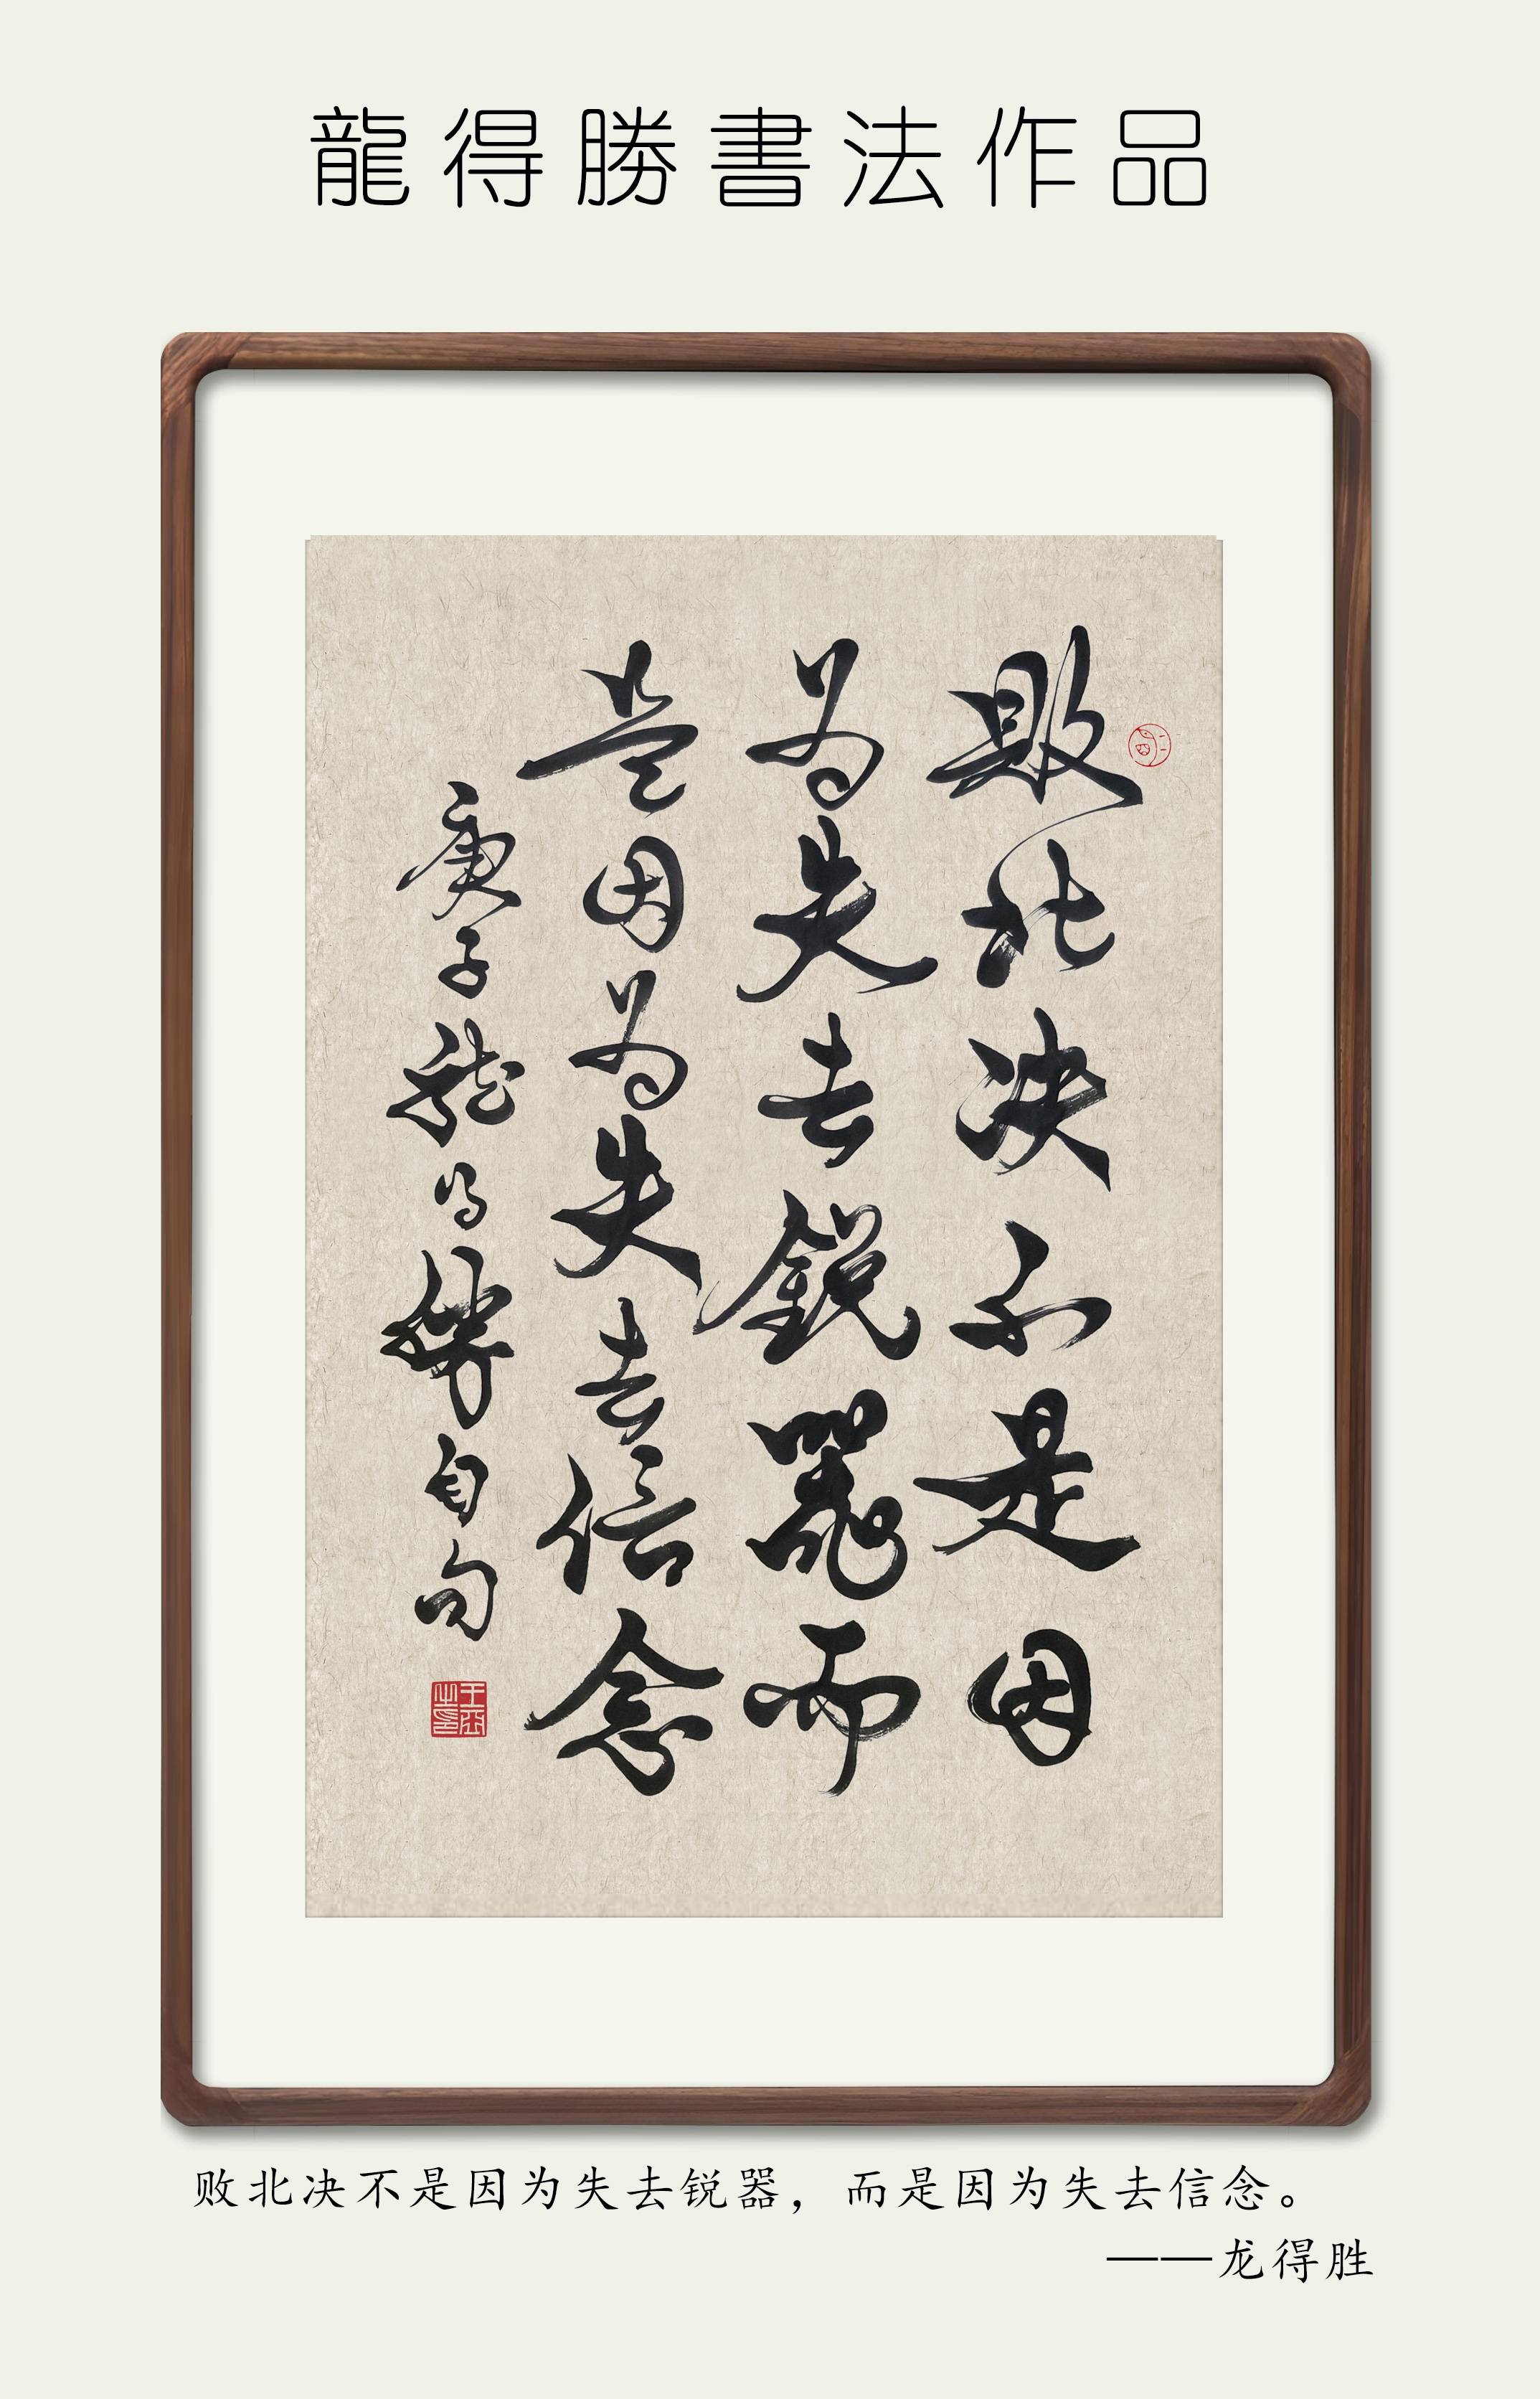 龍得勝書法作品
敗北决不是因
为失去鋭器而
是因为失去信念
庚子龙得勝自句
败北决不是因为失去锐器，而是因为失去信念。
——龙得胜